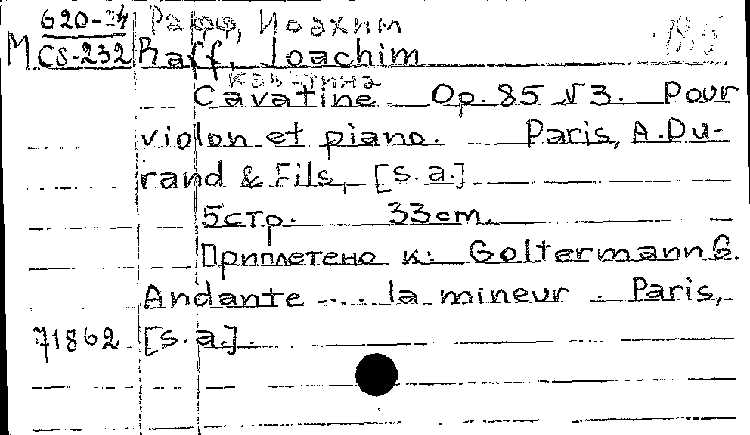 620-34 Рафф, Иоахим
М CS-232 Raff, Joachim
Каватина
Cavatine Op. 85 N3. Pour
violon et piano. Paris, A. Du-
rand & Fils, [s.a.]
5стр. 33cm.
Приплетено к: Goltermann G.
Andante .... la mineur. Paris,
71862 [s.a.].